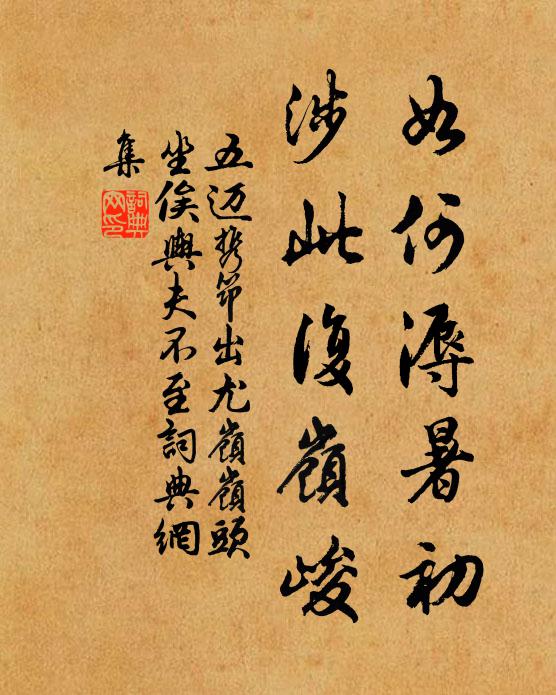 如何溽暑初
涉此復嶺峻
五迈𢹂笻出尤嶺嶺頭
坐俟輿夫不至詞典網
集
詞典網印